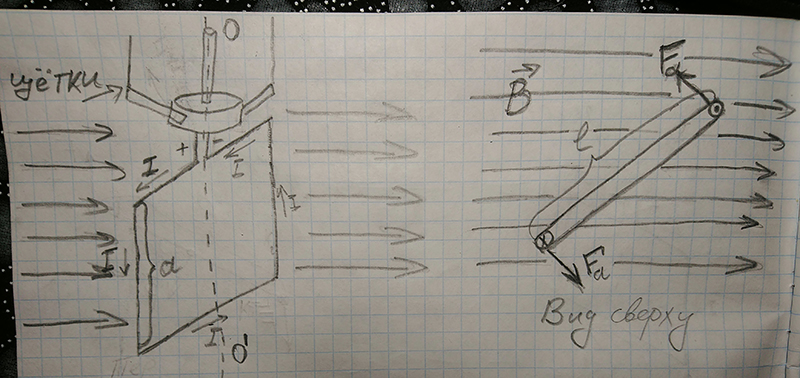 O
щётки
+
-
I
I
I
I
d
I
O'
B
Fa
l
Fa
Вид сверху